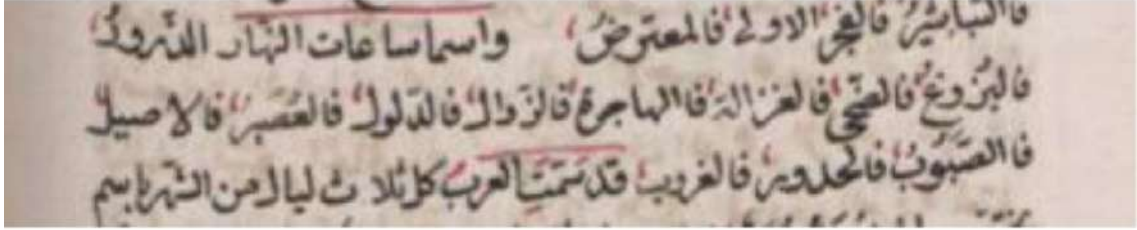 فالتباشير فالفجر الاولى فالمعترض واسما ساعات النهار الذرور
فالبزوغ فالضحى فالغزالة فالهاجرة فالزوال فالدلوك فالعصر فالاصيل
فالصبوب فالحدور فالغروب قد سمت العرب كل ثلاث ليال من الشهر باسم